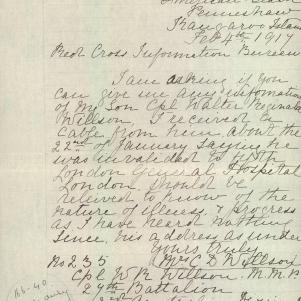 American Beach
Penneshaw
Kangaroo Island
Feb 4th 1917
Red Cross Information Bureau
I am asking if you
can give me any information
of My Son Cpl Walter Reginald
Willson, I received a
Cable from him about the
22nd of January saying he
was invalided to
London General Hospital
London should be
relieved to know of the
nature of illness & progress
as I have heard nothing
since, his address as under
Yours truly
Mrs C D Willson
No 235
Cpl W R Willson. M.M.
27th Battalion